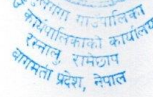 गाउँपालिका
कार्यपालिकाको कार्यालय
रस्नालु, रामेछाप
बागमती प्रदेश, नेपाल